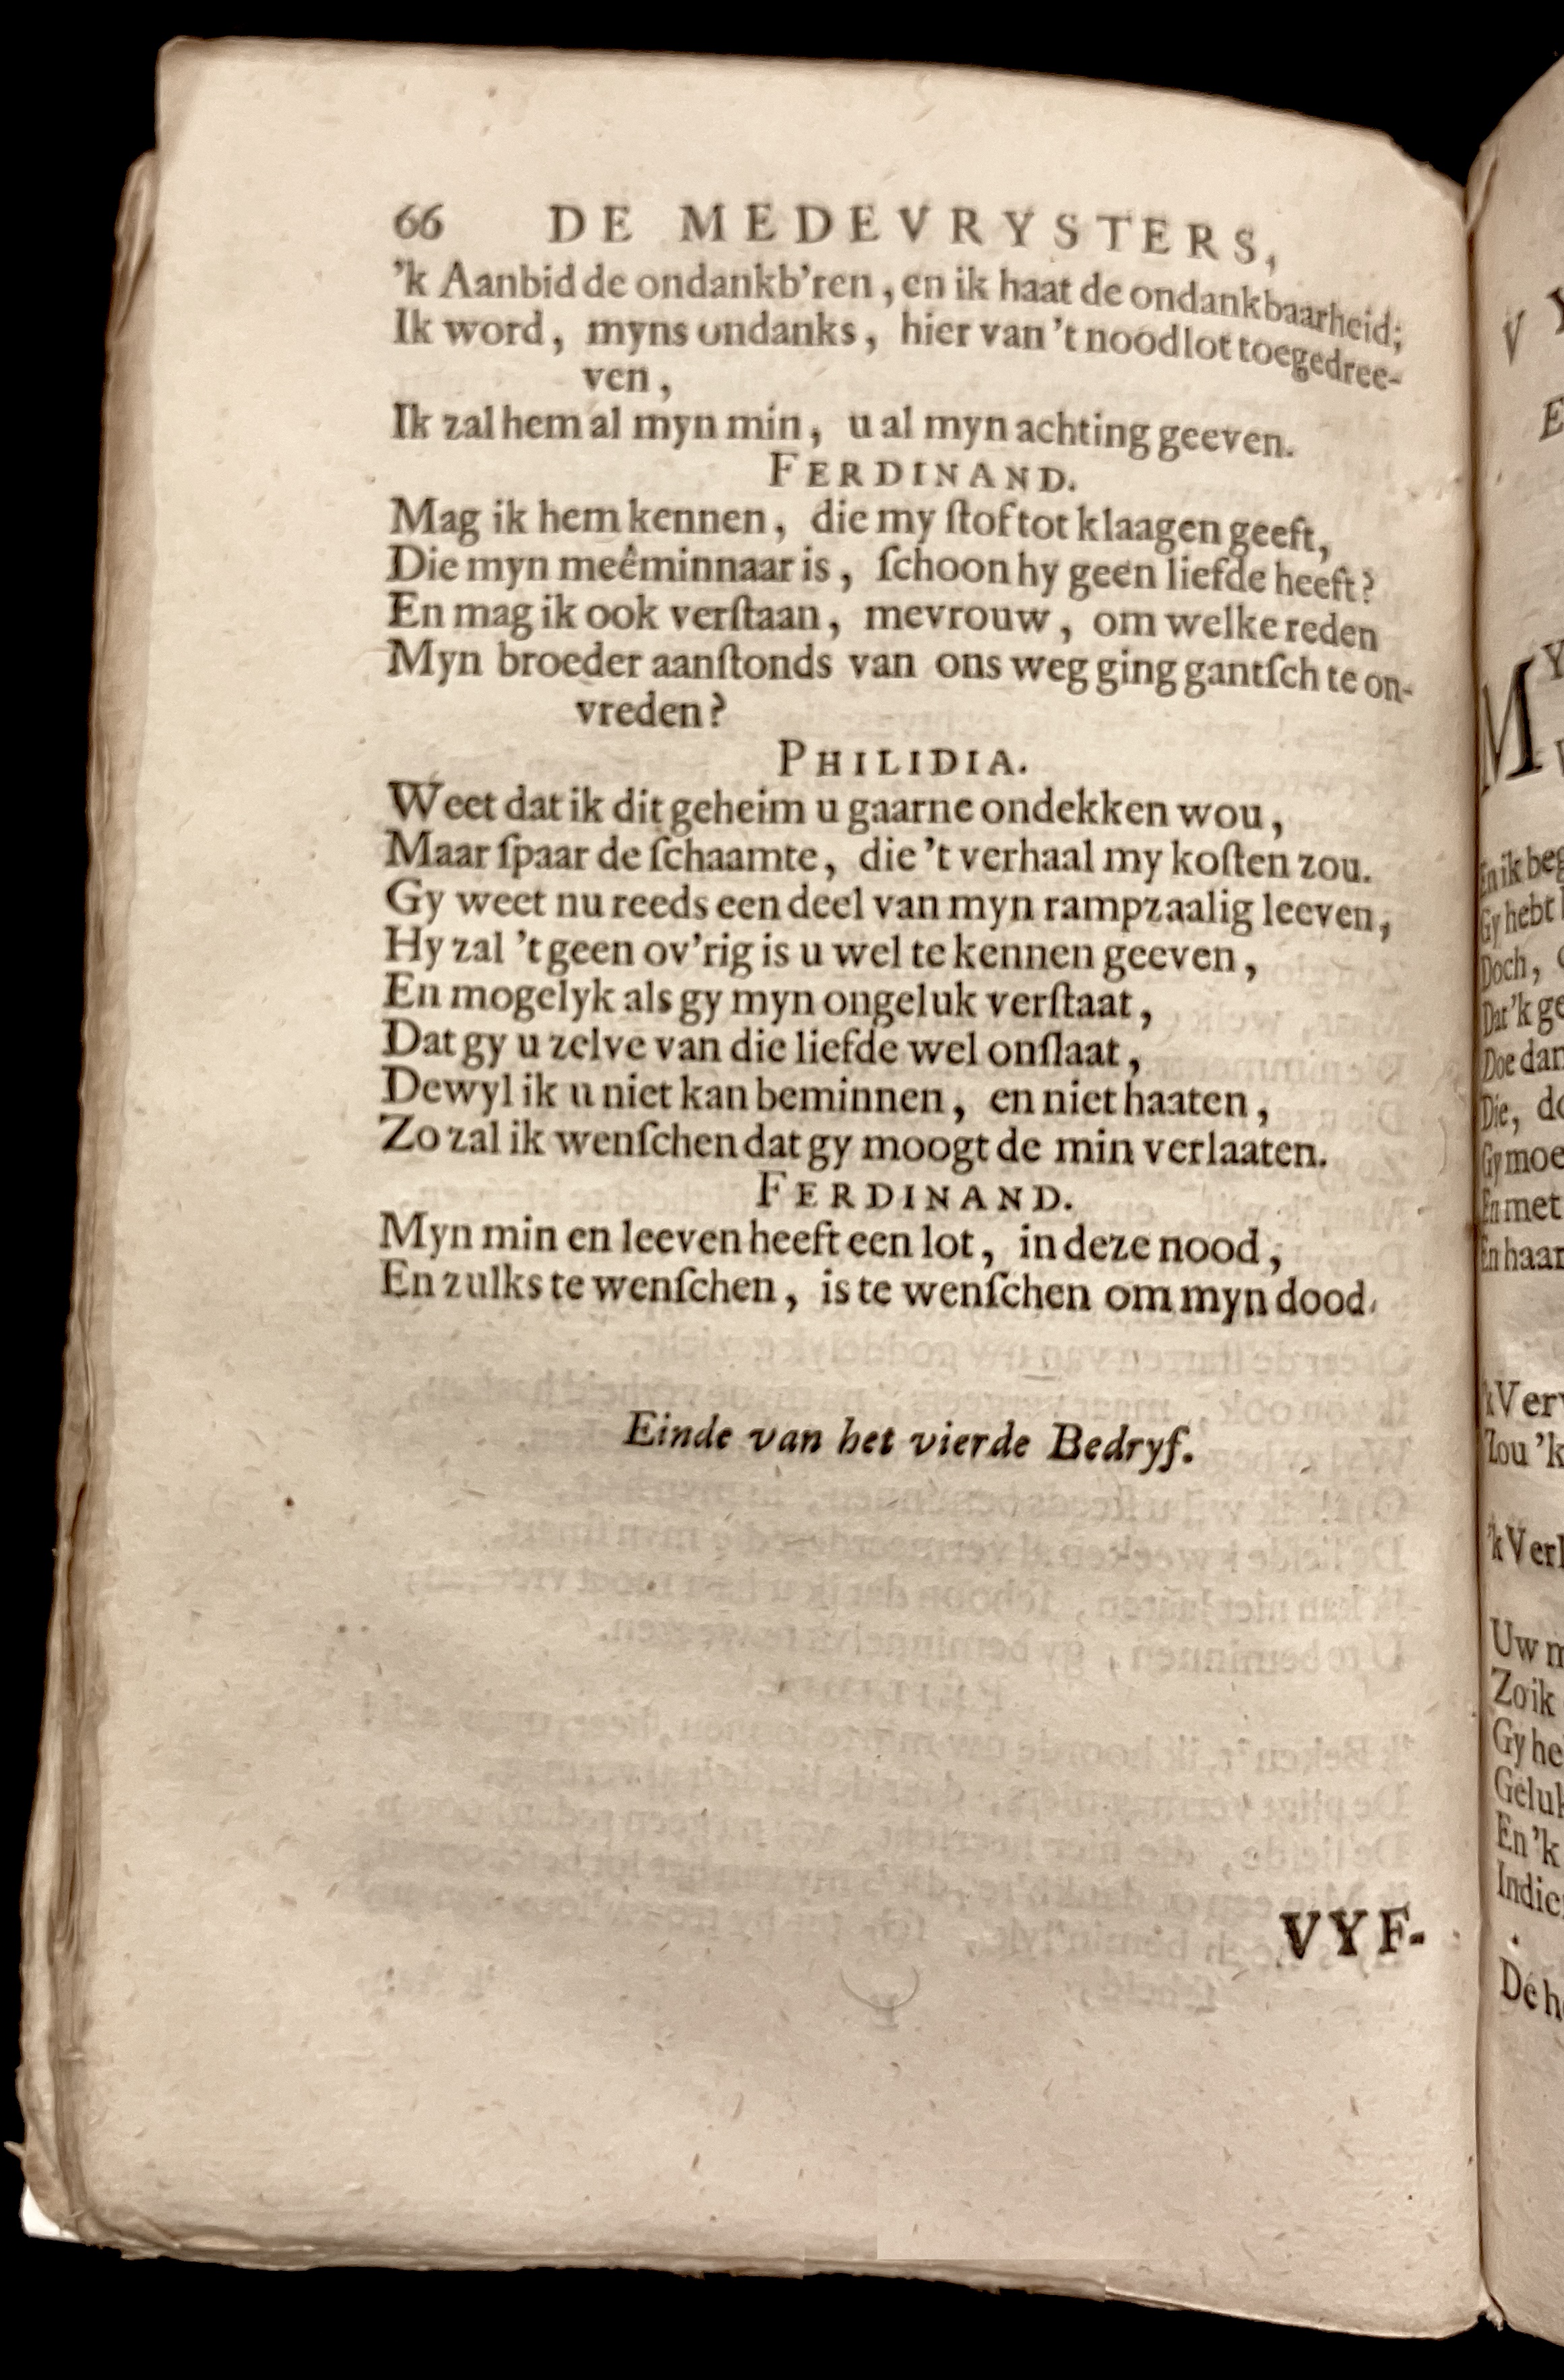 66 DE MEDEVRYSTERS,
'k Aanbid de ondankb'ren, en ik haat de ondankbaarheid;
Ik word, myns ondanks, hier van 't noodlot toegedree-
ven,
Ik zal hem al myn min, u al myn achting geeven.
FERDINAND.
Mag ik hem kennen, die my ſtof tot klaagen geeft,
Die myn meêminnaar is, ſchoon hy geen liefde heeft?
En mag ik ook verſtaan, mevrouw, om welke reden
Myn broeder aanſtonds van ons weg ging gantſch te on-
vreden?
PHILIDIA.
Weet dat ik dit geheim u gaarne ondekken wou,
Maar ſpaar de ſchaamte, die 't verhaal my koſten zou.
Gy weet nu reeds een deel van myn rampzaalig leeven,
Hy zal 't geen ov'rig is u wel te kennen geeven,
En mogelyk als gy myn ongeluk verſtaat,
Dat gy u zelve van die liefde wel onſlaat,
Dewyl ik u niet kan beminnen, en niet haaten,
Zo zal ik wenſchen dat gy moogt de min verlaaten.
FERDINAND.
Myn min en leeven heeft een lot, in deze nood,
En zulks te wenſchen, is te wenſchen om myn dood.
Einde van het vierde Bedryf.
VYF-
V
E
M
En ik beg
Gy hebt
Doch,
Dat 'k ge
Doe dan
Die, do
Gy moe
En met
En haar
'k Ver
Zou 'k
'k Verl
Uw m
Zo ik
Gy he
Geluk
En 'k
Indie
De h